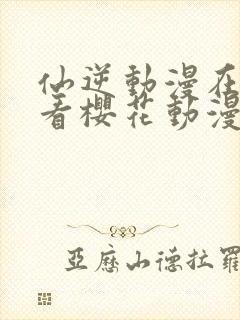 仙逆動漫在
看櫻花動漫
亞歷山德拉羅